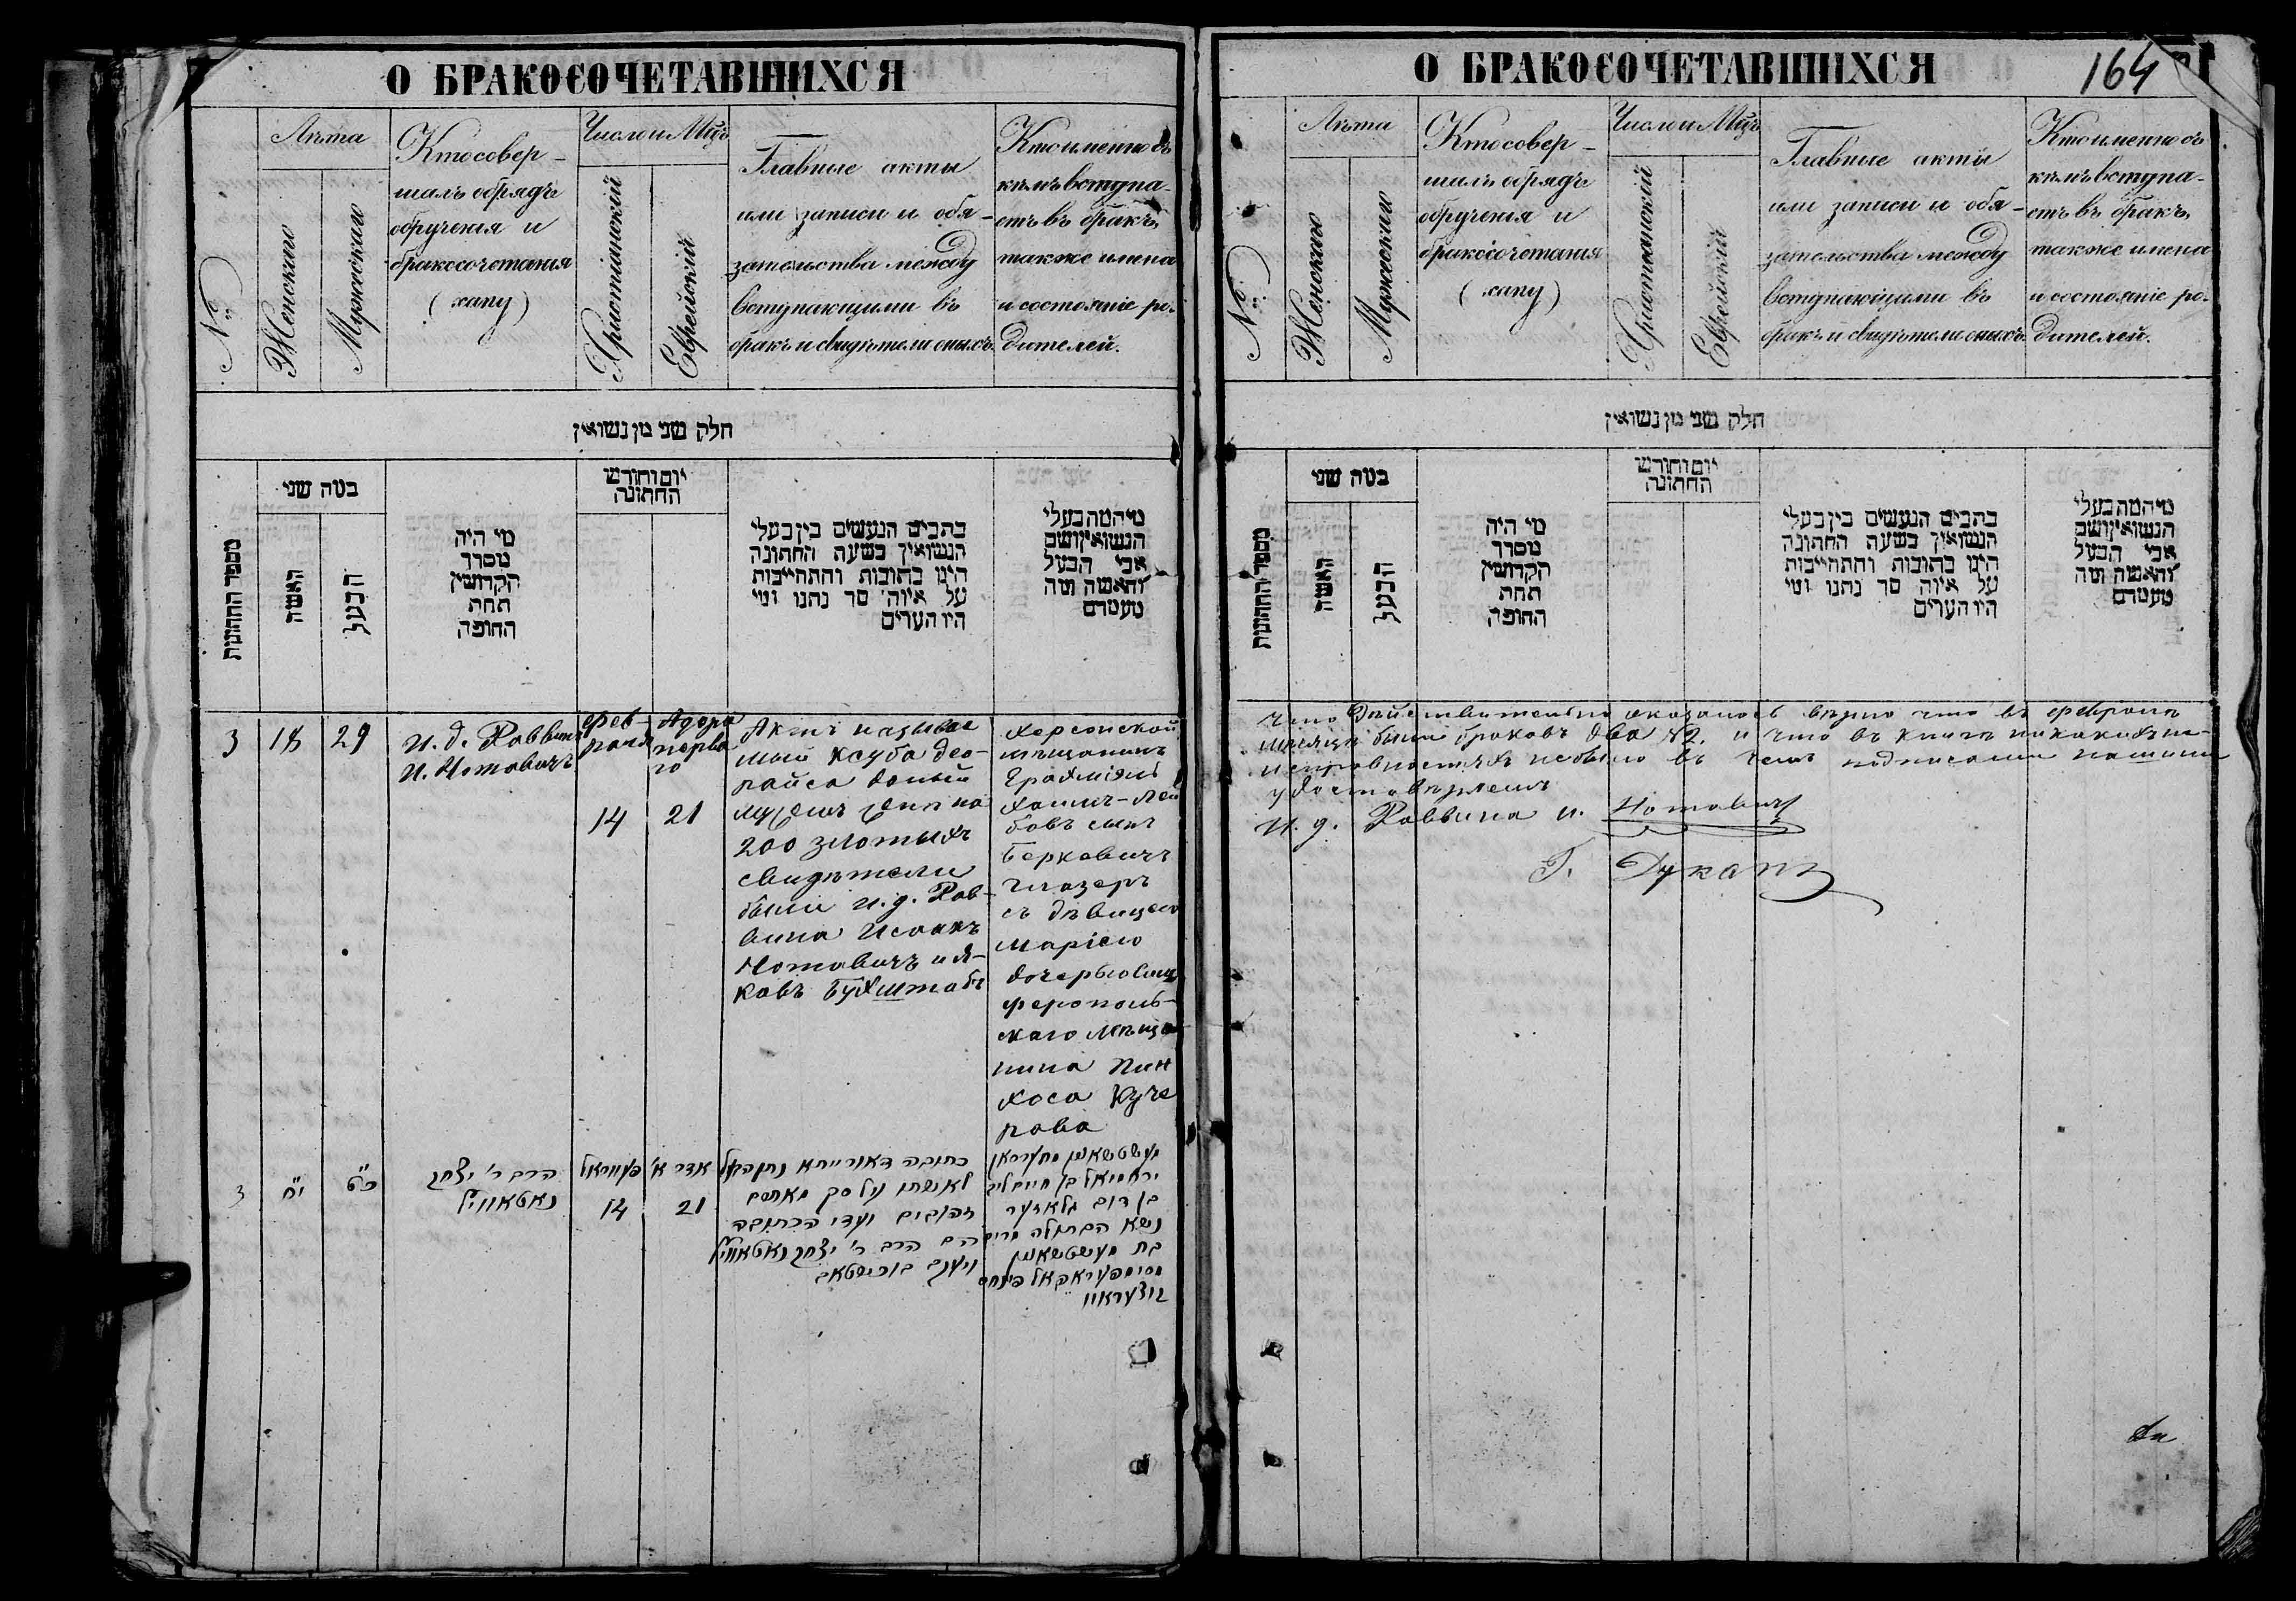 О БРАКОСОЧЕТАВШИХСЯ
№
Лѣта
Женскаго
Мужескаго
Кто совер-
шалъ обрядъ
обрученія и
бракосочетанія
(хапу)
Число и Мцъ
Христіанскій
Еврейскій
Главные акты
или записи и обя-
зательства между
вступающими въ
бракъ и свидѣтели оныхъ.
Кто именно съ
кѣмъ вступа-
етъ въ бракъ,
также имена
и состояніе ро-
дителей.
חלק שני מן נשואין
מספר החתונות
כמה שני
האשה
הבעל
מי היה
מסדר
הקדושין
תחת
החופה
יום וחודש
החתונה
כתבים הנעשים בין בעלי
הנשואין בשעה החתונה
היינו כתובות והתחייבות
על איזה סך נתנו ומי
היו העדים
מי המה בעלי
הנשואין ושם
אבי הבעל
והאשה ומה
מעמדם
3
18
29
И. д. Раввина
И. Нотовичъ
фев-
раля
14
Адора
перва
го
21
Актъ называе
мый ксуба део-
райса даный
мужемъ жены на
200 злотыхъ
свидѣтели
были и. д. Рав-
вина Исаакъ
Нотовичъ и Я-
ковъ Бухштабъ
Херсонской
мѣщанинъ
Ерахміилъ
Хаимъ-Лей
бовъ сынъ
Берковичъ
Глазеръ
съ дѣвицею
Маріею
дочерью Сим
ферополь-
скаго мѣща
нина Пин
хоса Куче
рова
3
י"ח
כ"ט
הרב ר' יצחק
נאטאוויץ
פעווראל
14
אדר א'
21
כתובה דאורייתא נתן הבעל
לאשתו על סך מאתים
זהובים ועדי הכתובה
הם הרב ר' יצחק נאטאוויץ
ויעקב בוכשטאב
מעשטשאנין חערסאן
ירחמיאל בן חיים ליב
בן דוב גלאזער
נשא הבתולה מרים
בת מעשטשאנין
סימפעראפאל פינחס
קוצעראוו
О БРАКОСОЧЕТАВШИХСЯ
164
№
Лѣта
Женскаго
Мужескаго
Кто совер-
шалъ обрядъ
обрученія и
бракосочетанія
(хапу)
Число и Мцъ
Христіанскій
Еврейскій
Главные акты
или записи и обя-
зательства между
вступающими въ
бракъ и свидѣтели оныхъ.
Кто именно съ
кѣмъ вступа-
етъ въ бракъ,
также имена
и состояніе ро-
дителей.
חלק שני מן נשואין
מספר החתונות
כמה שני
האשה
הבעל
מי היה
מסדר
הקדושין
תחת
החופה
יום וחודש
החתונה
כתבים הנעשים בין בעלי
הנשואין בשעה החתונה
היינו כתובות והתחייבות
על איזה סך נתנו ומי
היו העדים
מי המה בעלי
הנשואין ושם
אבי הבעל
והאשה ומה
מעמדם
что дѣйствительно оказалось вѣрно что въ февралѣ
мѣсяцѣ были браковъ два №2. и что въ книгѣ никакихъ не-
исправностяхъ небыло въ чемъ подписами нашими
удостовѣряемъ
И. д. Раввина И. Нотовичъ
Г. Дуканъ